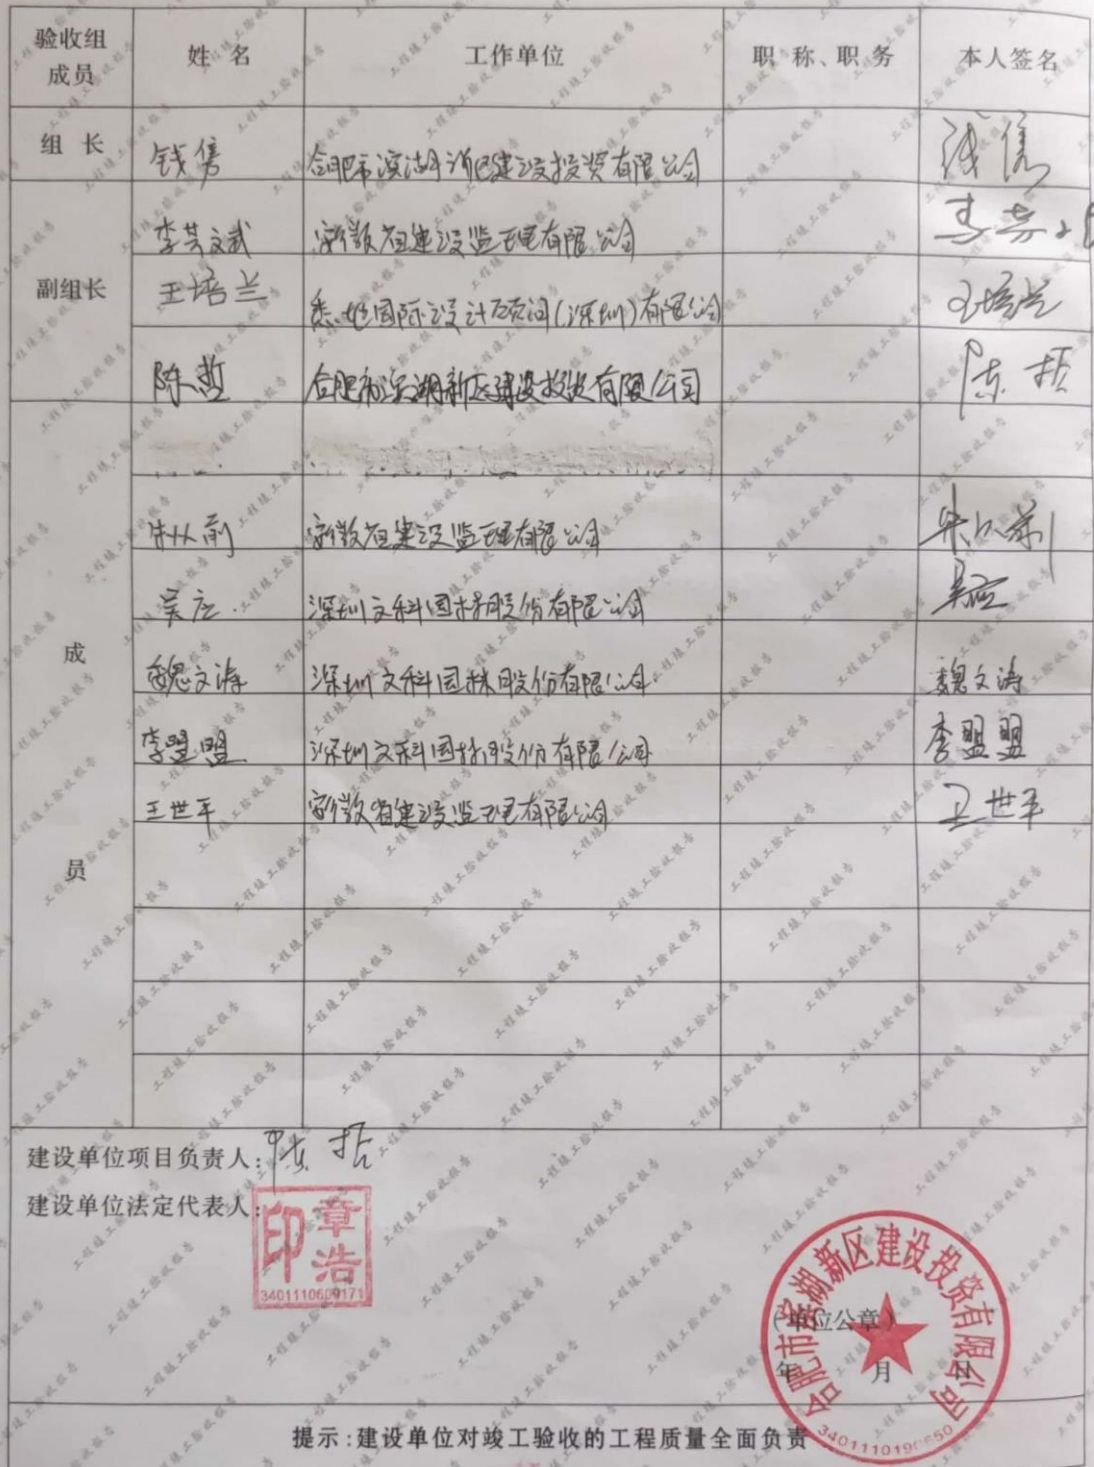 验收组成员 姓名 工作单位 职称、职务 本人签名
组长 钱隽 合肥市滨湖新区建设投资有限公司 钱隽
副组长
李芸文武 安徽省建设监理有限公司 李芸
王培兰 悉地国际设计顾问(深圳)有限公司 王培兰
陈哲 合肥市滨湖新区建设投资有限公司 陈哲
成员
朱从前 安徽省建设监理有限公司 朱从前
吴应 深圳文科园林股份有限公司 吴应
魏文涛 深圳文科园林股份有限公司 魏文涛
李盟盟 深圳文科园林股份有限公司 李盟盟
王世平 安徽省建设监理有限公司 王世平
建设单位项目负责人:陈哲
建设单位法定代表人:
章浩印
3401110609171
合肥市滨湖新区建设投资有限公司
(单位公章)
年 月 日
提示:建设单位对竣工验收的工程质量全面负责
工程竣工验收报告